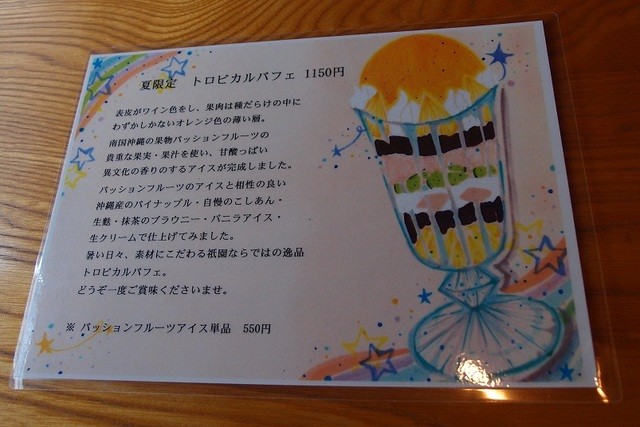 夏限定　トロピカルパフェ　1150円
表皮がワイン色をし、果肉は種だらけの中に
わずかしかないオレンジ色の薄い層。
南国沖縄の果物パッションフルーツの
貴重な果実・果汁を使い、甘酸っぱい
異文化の香りのするアイスが完成しました。
パッションフルーツのアイスと相性の良い
沖縄産のパイナップル・自慢のこしあん・
生麩・抹茶のブラウニー・バニラアイス・
生クリームで仕上げてみました。
暑い日々、素材にこだわる祇園ならではの逸品
トロピカルパフェ。
どうぞ一度ご賞味くださいませ。
※ パッションフルーツアイス単品　550円